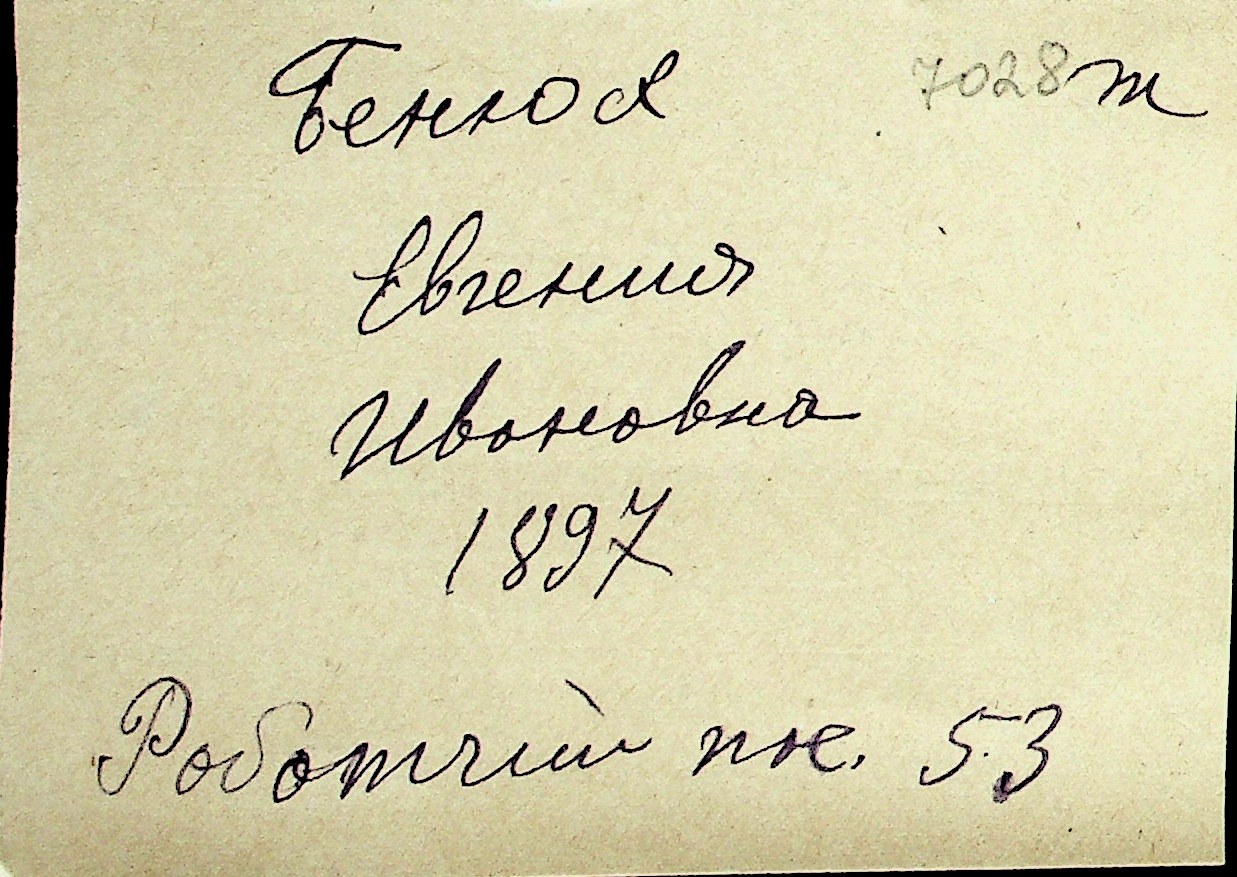 Бенюх 7028 т
Евгения
Ивановна
1897
Работчий пк. 53